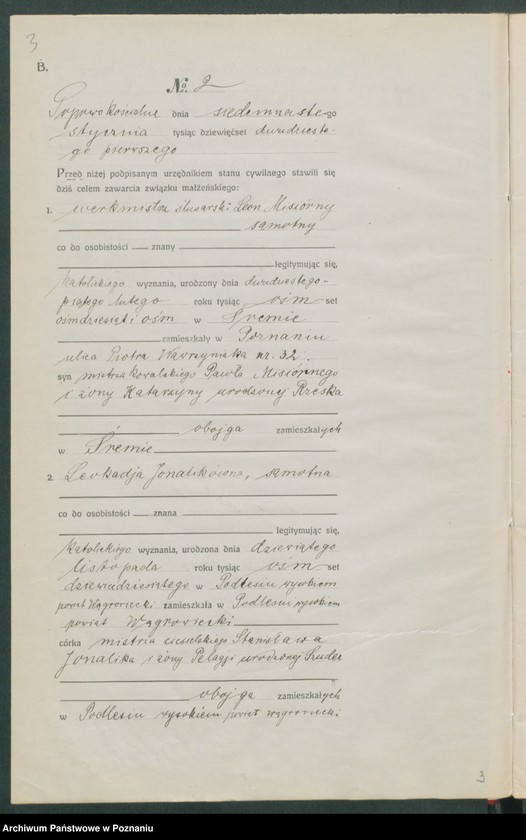 3
B.
№ 2
Popowokościelne dnia siedemnaste-go
stycznia tysiąc dziewięćset dwudzieste-
go pierwszego
Przed niżej podpisanym urzędnikiem stanu cywilnego stawili się
dziś celem zawarcia związku małżeńskiego:
1. werkmistrz ślusarski Leon Misiorny
samotny
co do osobistości znany
legitymując się,
katolickiego wyznania, urodzony dnia dwudziestego-
piątego lutego roku tysiąc ośm set
ośmdziesiąt i ośm w Śremie
zamieszkały w Poznaniu
ulica Piotra Wawrzyniaka nr. 32.
syn mistrza kowalskiego Pawła Misiornego
i żony Katarzyny urodzonej Rzeska
obojga zamieszkałych
w Śremie
2. Leokadja Jonalikówna, samotna
co do osobistości znana
legitymując się,
katolickiego wyznania, urodzona dnia dziewiątego
listopada roku tysiąc ośm set
dziewiędziesiątego w Podlesiu wysokiem
powiat Wągrowiecki zamieszkała w Podlesiu wysokiem
powiat Wągrowiecki
córka mistrza ciesielskiego Stanisława
Jonalika i żony Pelagji urodzonej Szuder
obojga zamieszkałych
w Podlesiu wysokiem powiat wągrowiecki
3
Archiwum Państwowe w Poznaniu